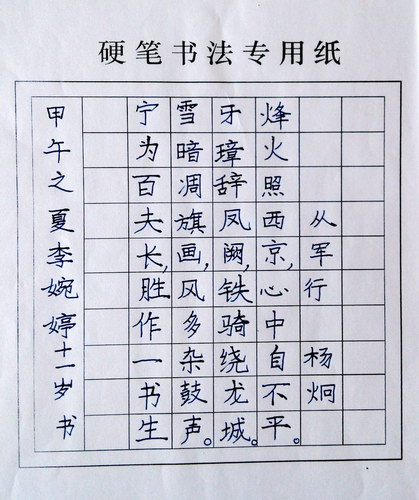 硬笔书法专用纸
从军行 杨炯
烽火照西京,心中自不平。
牙璋辞凤阙,铁骑绕龙城。
雪暗凋旗画,风多杂鼓声。
宁为百夫长,胜作一书生。
甲午之夏李婉婷十一岁书